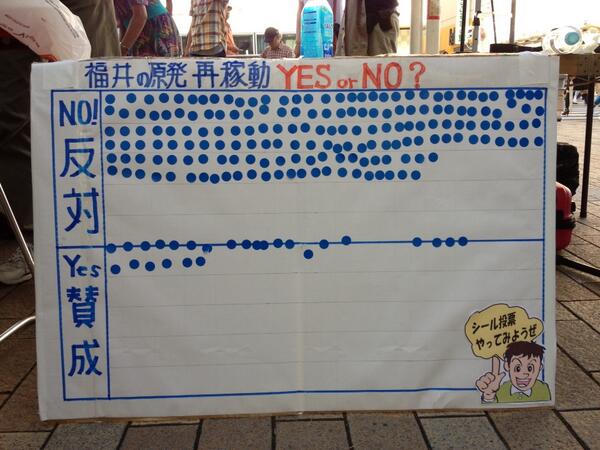 福井の原発 再稼動 YES or NO?
NO!
反対
Yes
賛成
シール投票
やってみようぜ